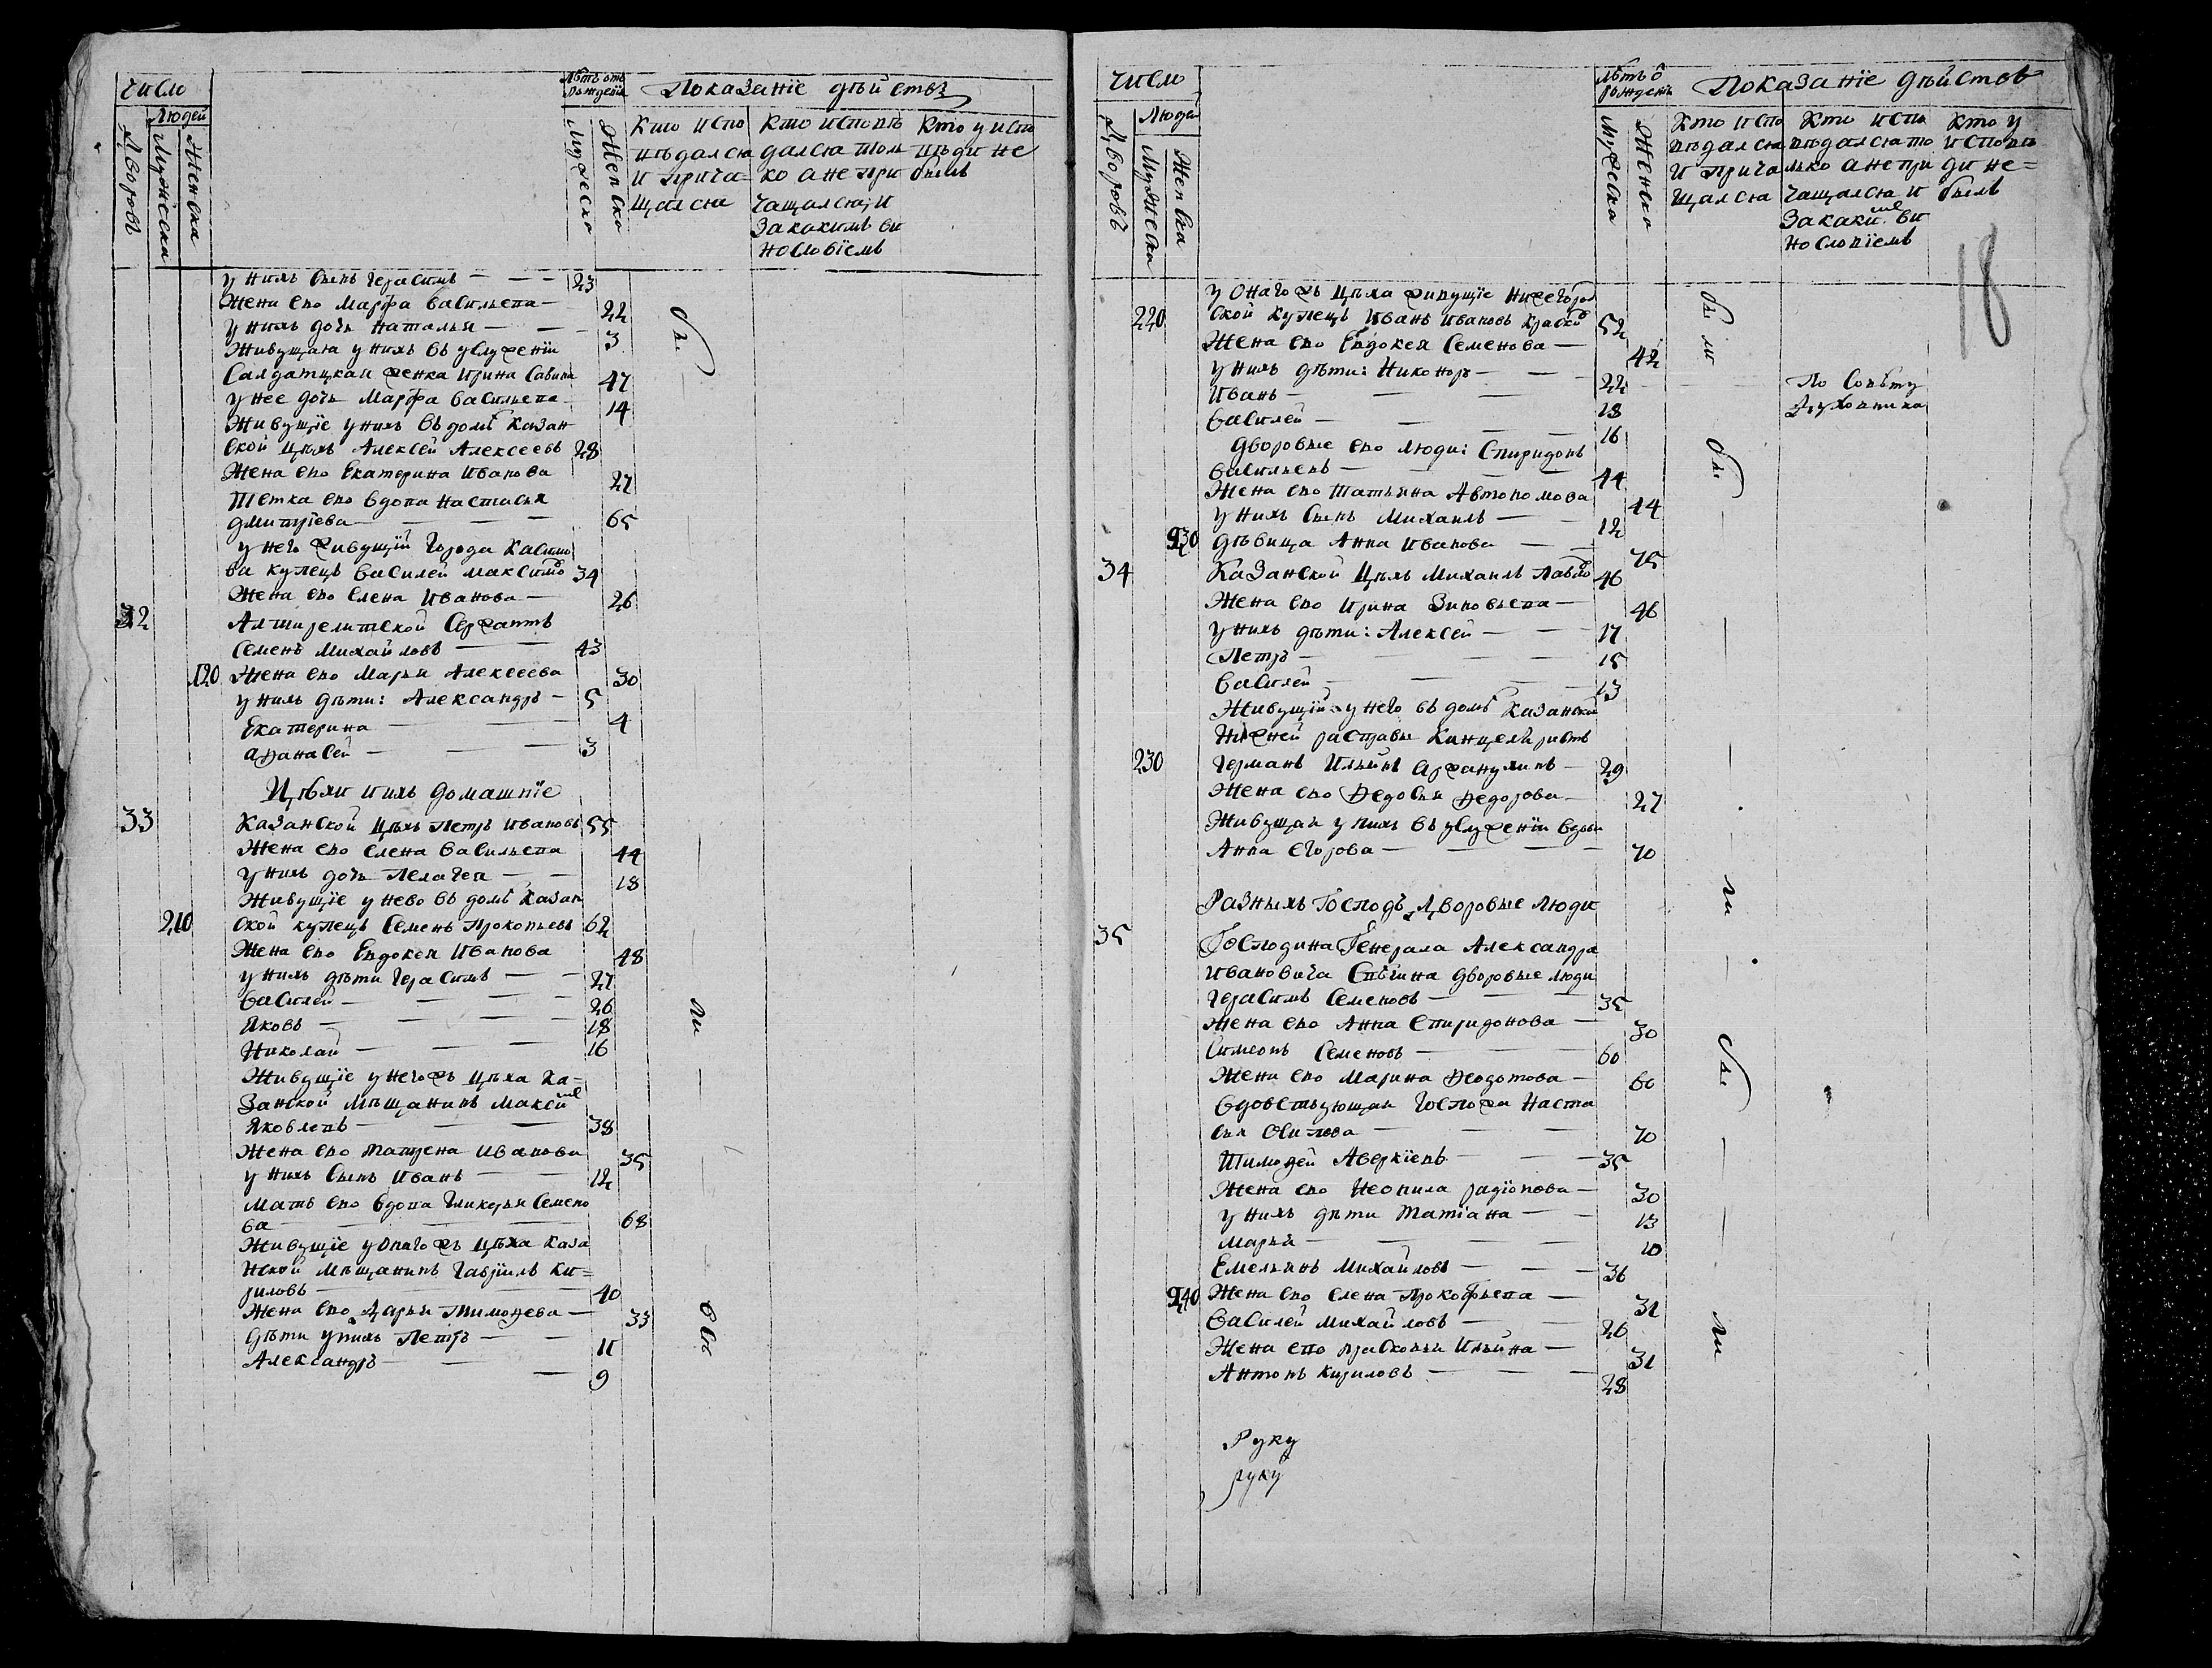 число
Людей
Дворовъ
Мужеска
Женска
Лѣтъ отъ
рожденія
Мужеска
Женска
Показаніе дѣйствъ
Кто испо
вѣдался
и прича-
щался
Кто исповѣ
дался тол
ко а не при
чащался, и
за какимъ ви
нословіемъ
Кто у испо
вѣди не
былъ
у нихъ сынъ Герасимъ — 23
Жена ево Марфа Васильева — 22
у нихъ дочь Наталья — 3
Живущая у нихъ въ услуженіи
Салдатцкая женка Ирина Савина 47
у нее дочь Марфа Васильева 14
Живущіе у нихъ въ домѣ Казан
ской цѣхъ Алексѣй Алексеевъ 28
Жена ево Екатерина Иванова 27
Тетка ево вдова Настасья
Дмитріева — 65
у него живущій города Касимо
ва купецъ Василей Максимо 34
Жена ево Елена Иванова — 26
32 Семенъ Михайловъ — 43
120 Жена ево Марья Алексеева 30
у нихъ дѣти: Александръ — 5
Екатерина — 4
Афанасей — 3
Цѣхи и ихъ домашніе
33 Казанской цѣхъ Петръ Ивановъ 55
Жена ево Елена Васильева 44
у нихъ дочь Пелагея — 18
Живущіе у нево въ домѣ Казан
210 ской купецъ Семенъ Прокопьевъ 62
Жена ево Евдокея Иванова 48
у нихъ дѣти Герасимъ — 27
Василей — 26
Яковъ — 18
Николай — 16
Живущіе у негожъ цѣха Ка-
занской мѣщанинъ Максимъ
Яковлевъ — 38
Жена ево Матрена Иванова 35
у нихъ сынъ Иванъ — 12
Мать ево вдова Гликерья Семено
ва — 68
Живущіе у онагожъ цѣха Каза
нской мѣщанинъ Гавріилъ Ки-
риловъ — 40
Жена ево Дарья Тимофева — 33
Дѣти у нихъ Петръ — 11
Александръ — 9
бы
ли
всѣ
число
Людей
Дворовъ
Мужеска
Женска
Лѣтъ о
рожденія
Мужеска
Женска
Показаніе дѣйствъ
Кто испо
вѣдался
и прича
щался
Кто испо
вѣдался то
лько а не при
чащался и
за какимъ ви
нословіемъ
Кто у
исповѣ
ди не-
былъ
18
у онагожъ цѣха живущіе Нижегород
220 ской купецъ Иванъ Ивановъ 52
Жена ево Евдокея Семенова — 42
у нихъ дѣти: Никоноръ — 22 По совѣту
Духовника
Иванъ — 18
Василей — 16
Дворовые ево люди: Спиридонъ
Васильевъ — 44
Жена ево Татьяна Автономова 44
у нихъ сынъ Михаилъ — 12
130 Дѣвица Анна Иванова — 75
34 Казанской цѣхъ Михаилъ Павло 46
Жена ево Ирина Зиновьева — 46
у нихъ дѣти: Алексей — 17
Петръ — 15
Василей — 13
Живущій у него въ домѣ Казанской
Нижней расправы Канцеляристъ
230 Германъ Ильинъ 29
Жена ево Федосья Федорова — 27
Живущая у нихъ въ услуженіи вдова
Анна Егорова — 70
Разныхъ Господъ Дворовые Люди
35 Господина Генерала Александра
Ивановича Свѣчина дворовые люди
Герасимъ Семеновъ — 35
Жена ево Анна Спиридонова — 30
Симеонъ Семеновъ — 60
Жена ево Марина Феодотова — 60
Вдовствующая Госпожа Наста
сья Осипова — 70
Тимофей Аверкіевъ — 35
Жена ево Неонила Радіонова — 30
у нихъ дѣти Татіана — 13
Марья — 10
Емельянъ Михайловъ — 36
140 Жена ево Елена Прокофьева — 31
Василей Михайловъ — 26
Жена ево Прасковья Ильина — 31
Антонъ Кириловъ — 28
бы
ли
бы
ли
бы
ли
Руку
руку